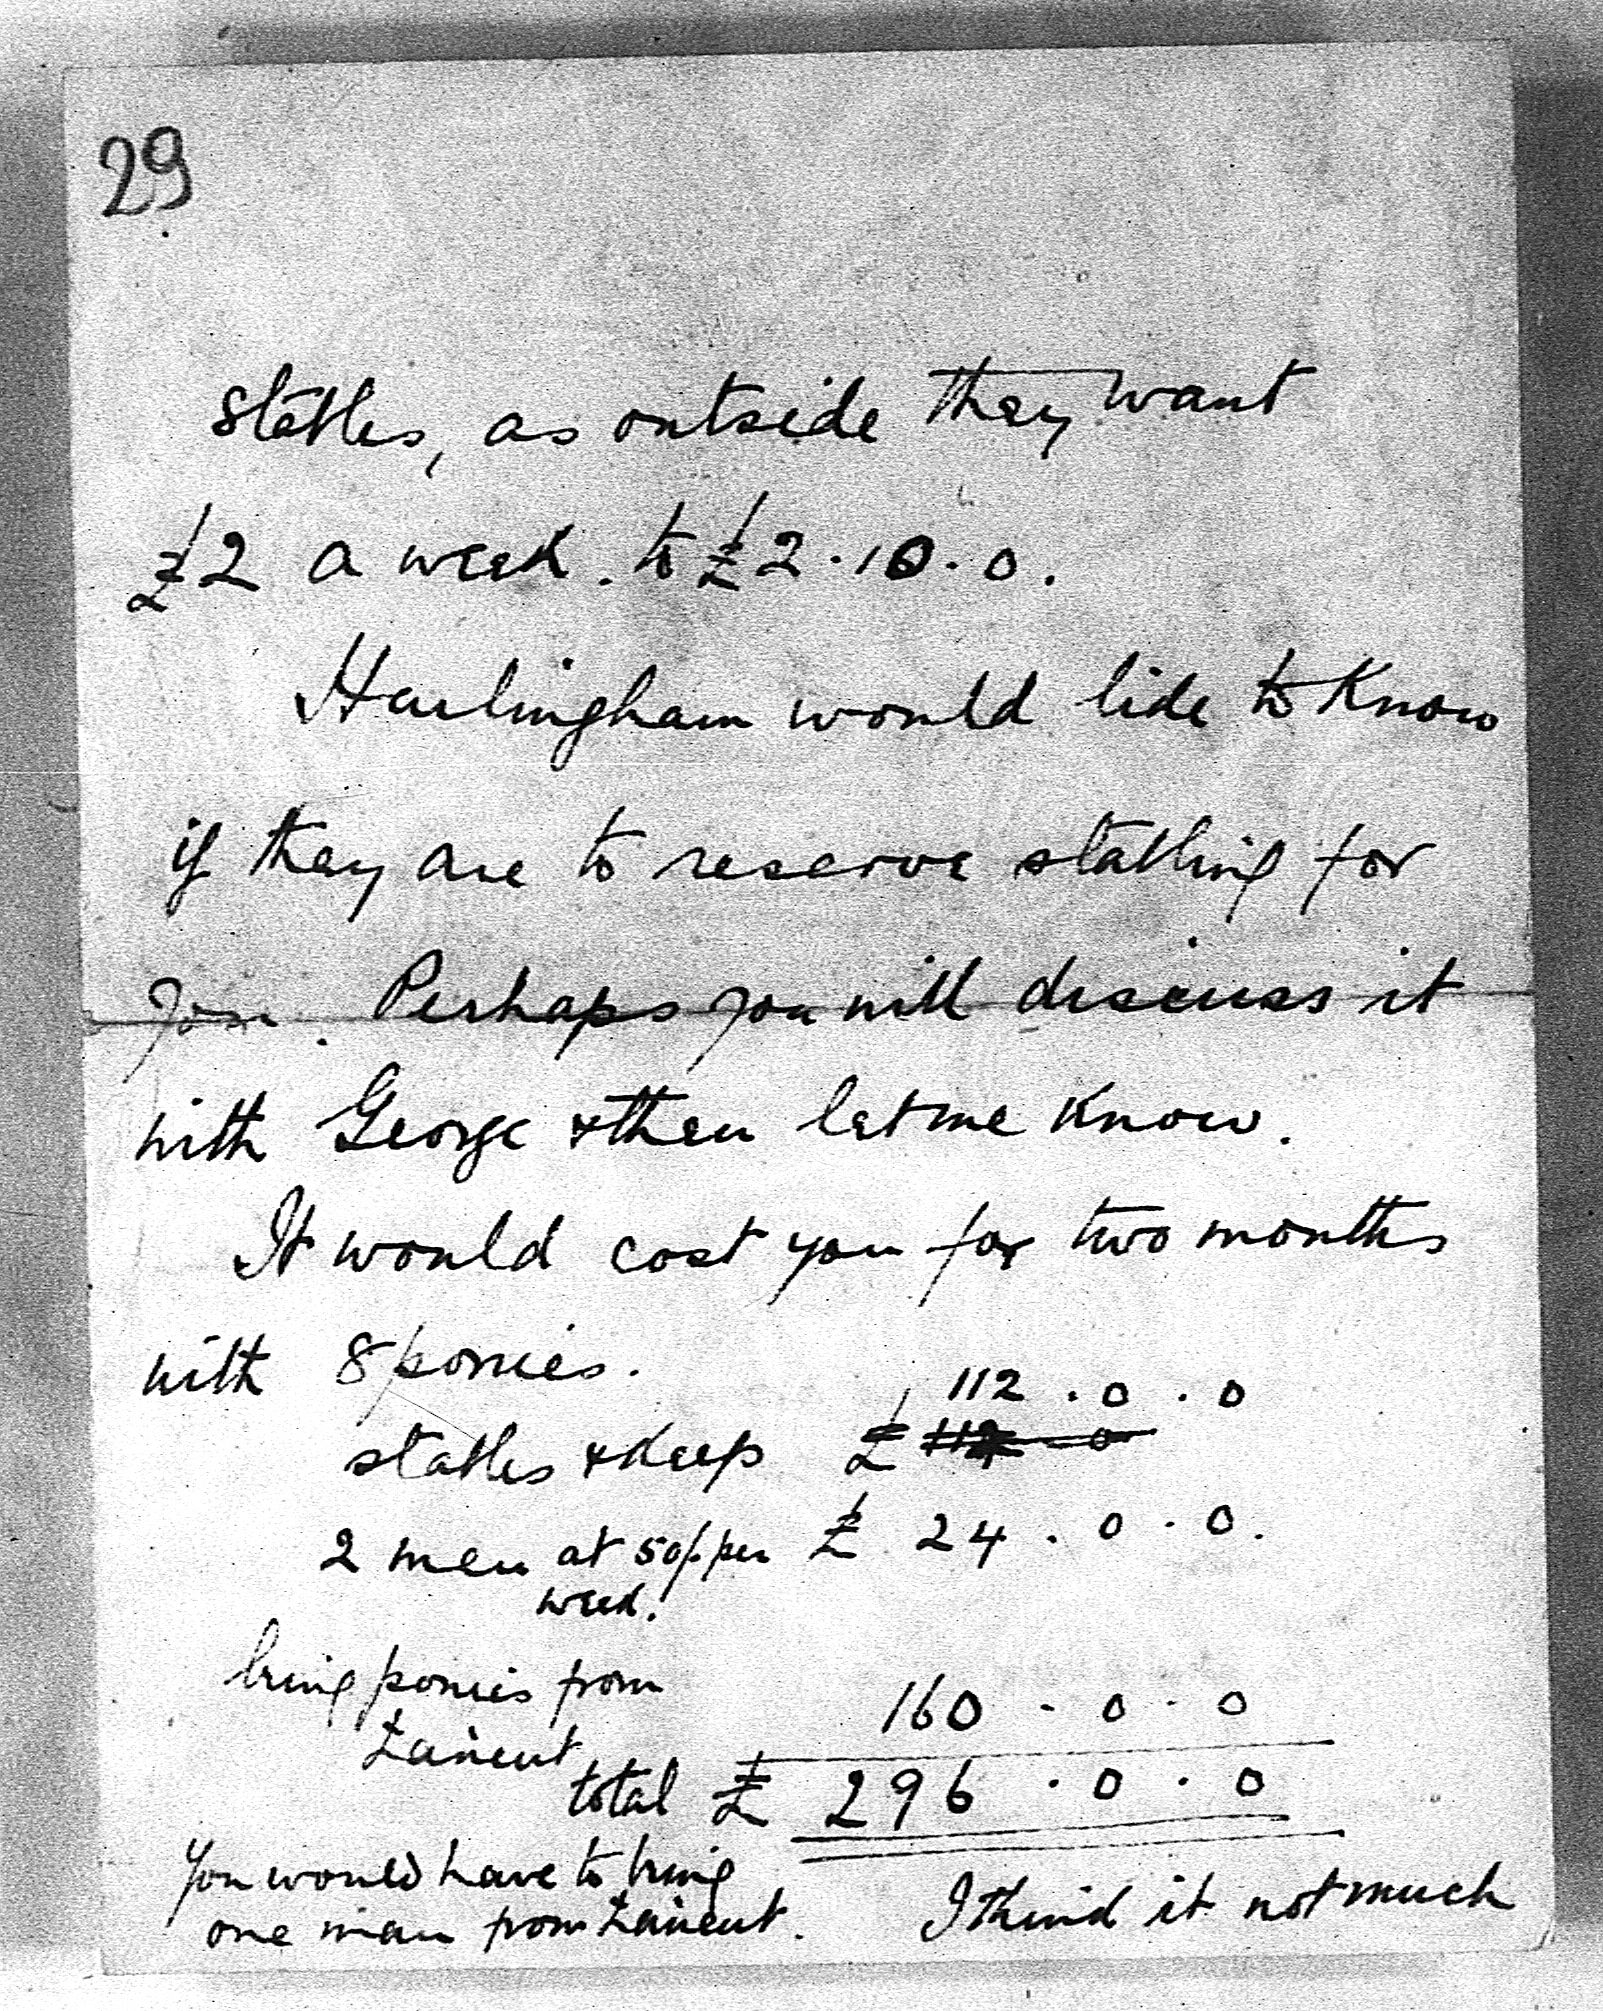 29
stables, as outside they want
£2 a week. to £2.10.0.
Hurlingham would like to know
if they are to reserve stabling for
you. Perhaps you will discuss it
with George & then let me know.
It would cost you for two months
with 8 ponies.
112.0.0
stables & keep £
2 men at 50/- per £ 24.0.0.
week.
bring ponies from
160.0.0
total £ 296.0.0
You would have to bring
one man from
I think it not much